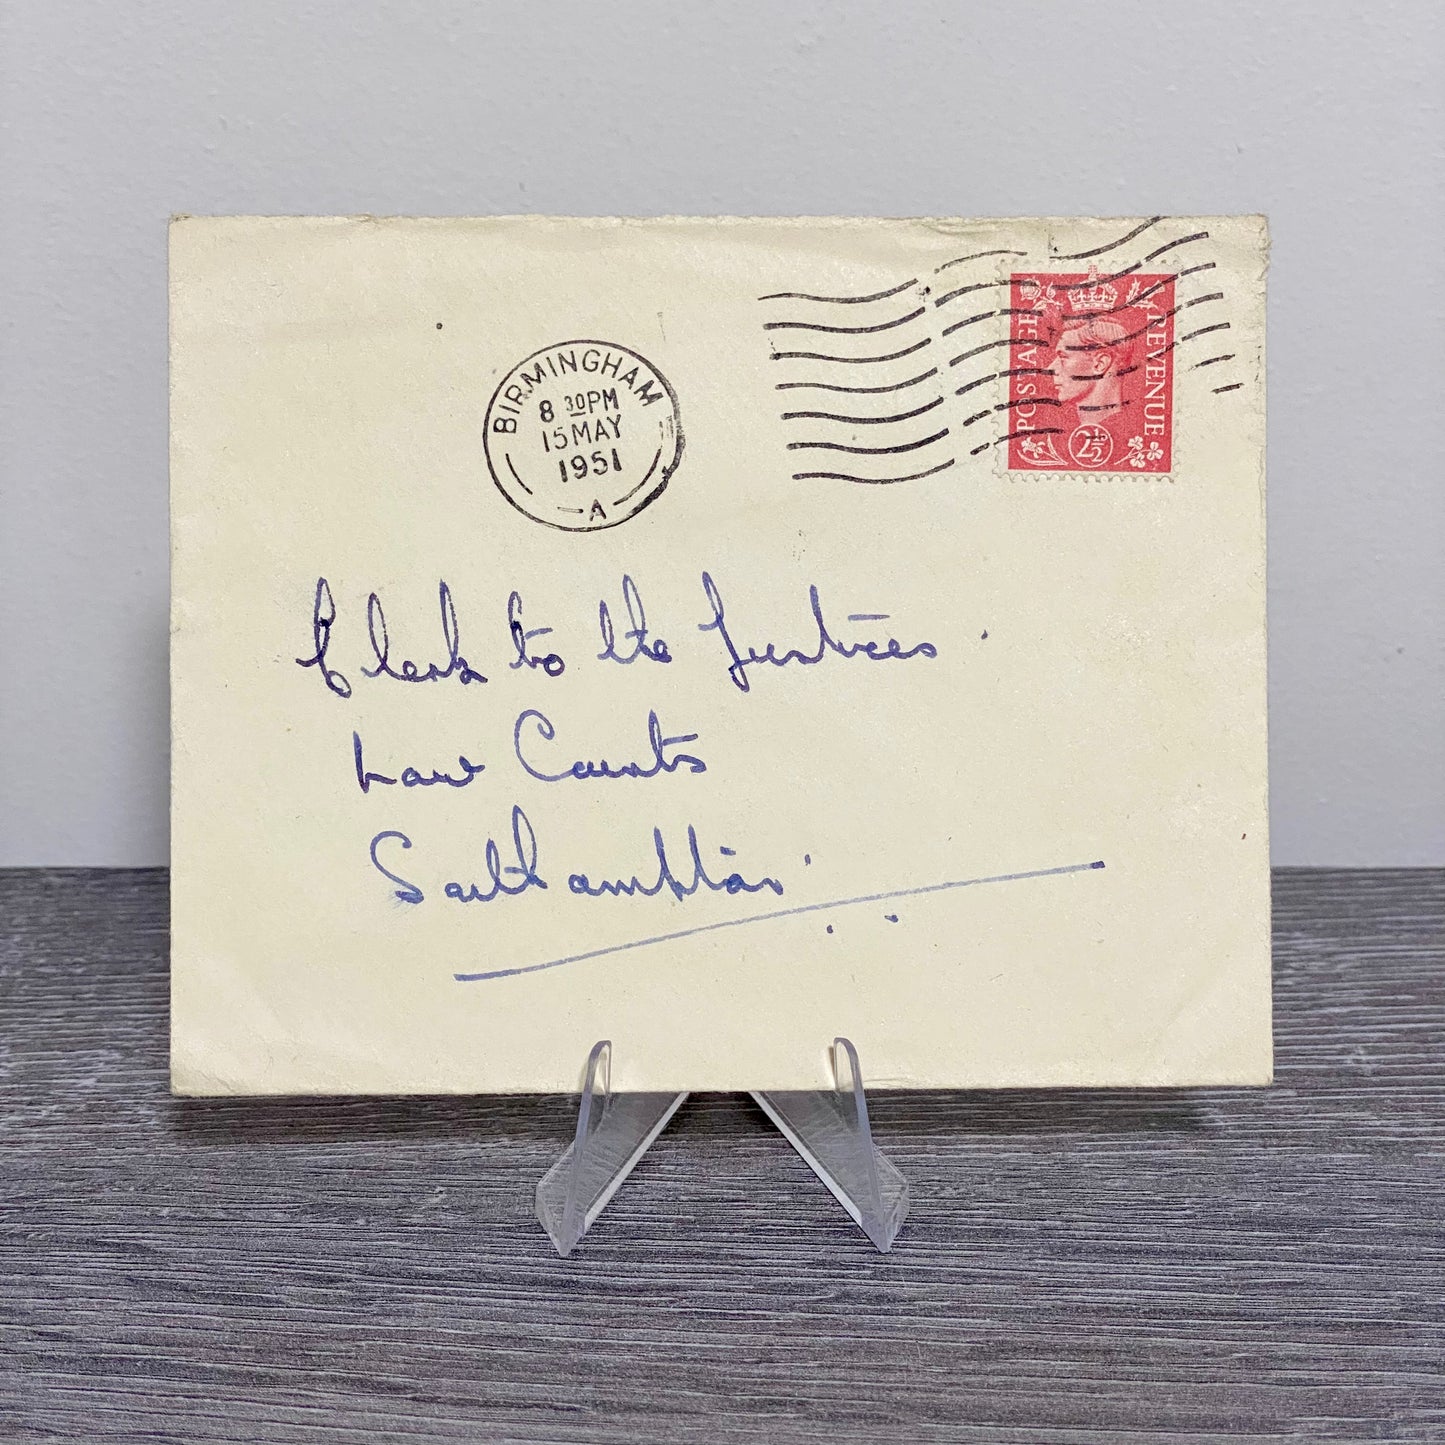 BIRMINGHAM
8 30 PM
15 MAY
1951
A
POSTAGE
REVENUE
2½
Clerk to the Justices.
Law Courts
Southampton.